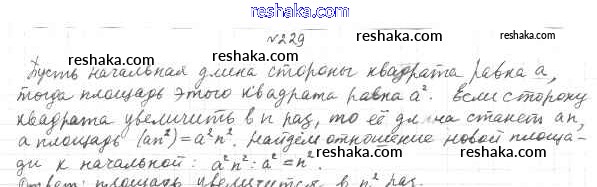 reshaka.com
№229
reshaka.com
reshaka.com
Пусть начальная длина стороны квадрата равна a,
тогда площадь этого квадрата равна a². Если сторону
reshaka.com
reshaka.com
квадрата увеличить в n раз, то её длина станет an,
а площадь (an²)=a²n². Найдём отношение новой площа-
ди к начальной: a²n²:a²=n².
reshaka.com
reshaka.com
Ответ: площадь увеличится в n² раз.